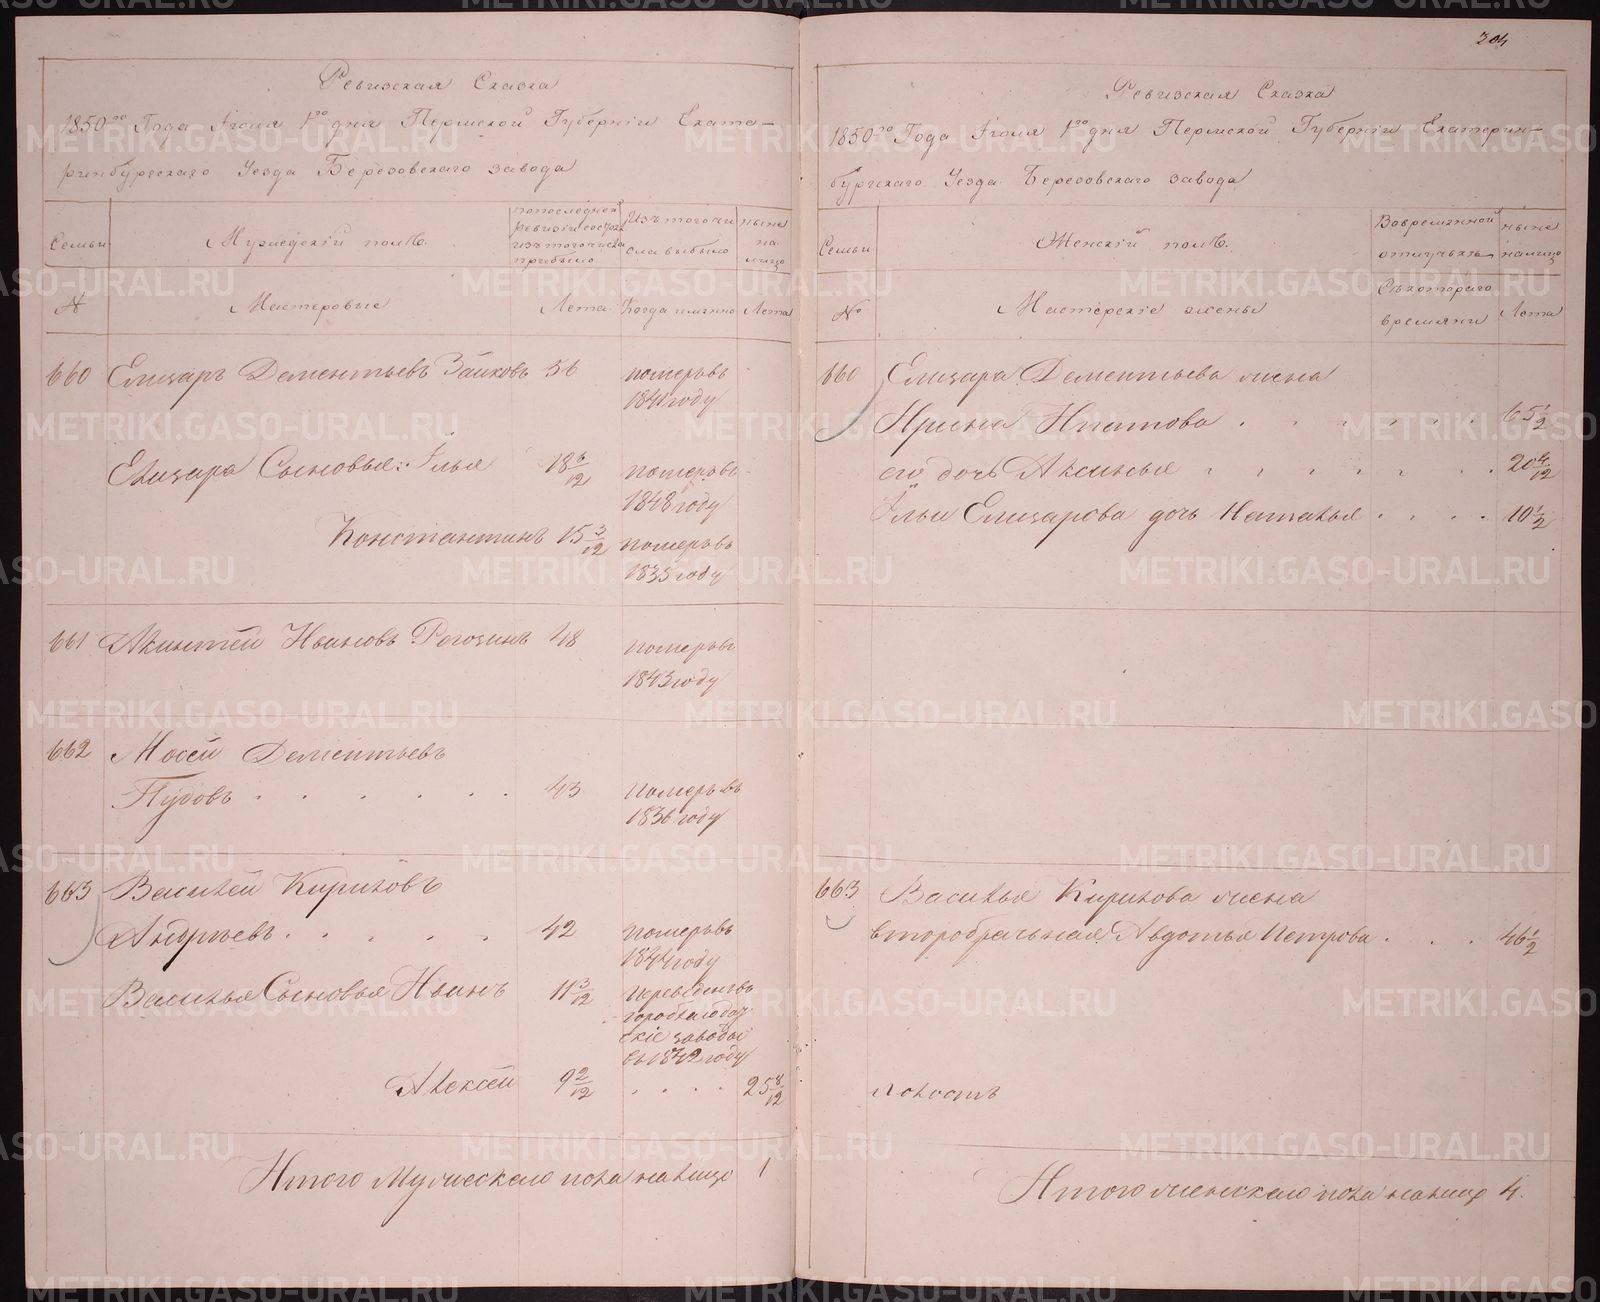 Ревизская Сказка
1850го Года Июля 1го дня Пермской Губерніи Екате-
ринбургскаго Уезда Березовскаго завода
Семьи
Мужескій полъ.
попоследней
ревизіи состояло
изъ того числа
прибыло
Изъ того чи
сла выбыло
ныне
на
лицо
№
Мастеровые
Лета
Когда имянно
Лета
660 Елизаръ Дементьевъ Зайковъ 56 померъ въ
1841 году
Елизара Сыновья: Илья 18 6/12 померъ въ
1848 году
Константинъ 15 3/12 померъ въ
1835 году
661 Акинтей Ивановъ Рогозинъ 48 померъ въ
1843 году
662 Мосей Дементьевъ
Пудовъ . . . . . . 43 померъ въ
1836 году
663 Василей Кириловъ
Андреевъ . . . . . 42 померъ въ
1844 году
Василья Сыновья Иванъ 11 3/12 переведенъ въ
горо
скіе заводы
въ 1842 году
Алексей 9 2/12 . . . . 25 8/12
Итого Мужескаго пола налицо 1
304
Ревизская Сказка
1850го Года Июля 1го дня Пермской Губерніи Екатерин-
бургскаго Уезда Березовскаго завода
Семьи
Женскій полъ.
Вовременной
отлучькѣ
ныне
налицо
№
Мастерскіе жены
Съкотораго
времяни
Лета
660 Елизара Дементьева жена
Ирина Ипатова . . . . . . 65 1/2
его дочь Аксинья . . . . . . 20 4/12
Ильи Елизарова дочь Наталья . . . . 10 1/2
663 Василья Кирилова жена
второбрачьная Авдотья Петрова . . . 46 1/2
полостъ
Итого женскаго пола налицо 4.
METRIKI.GASO-URAL.RU